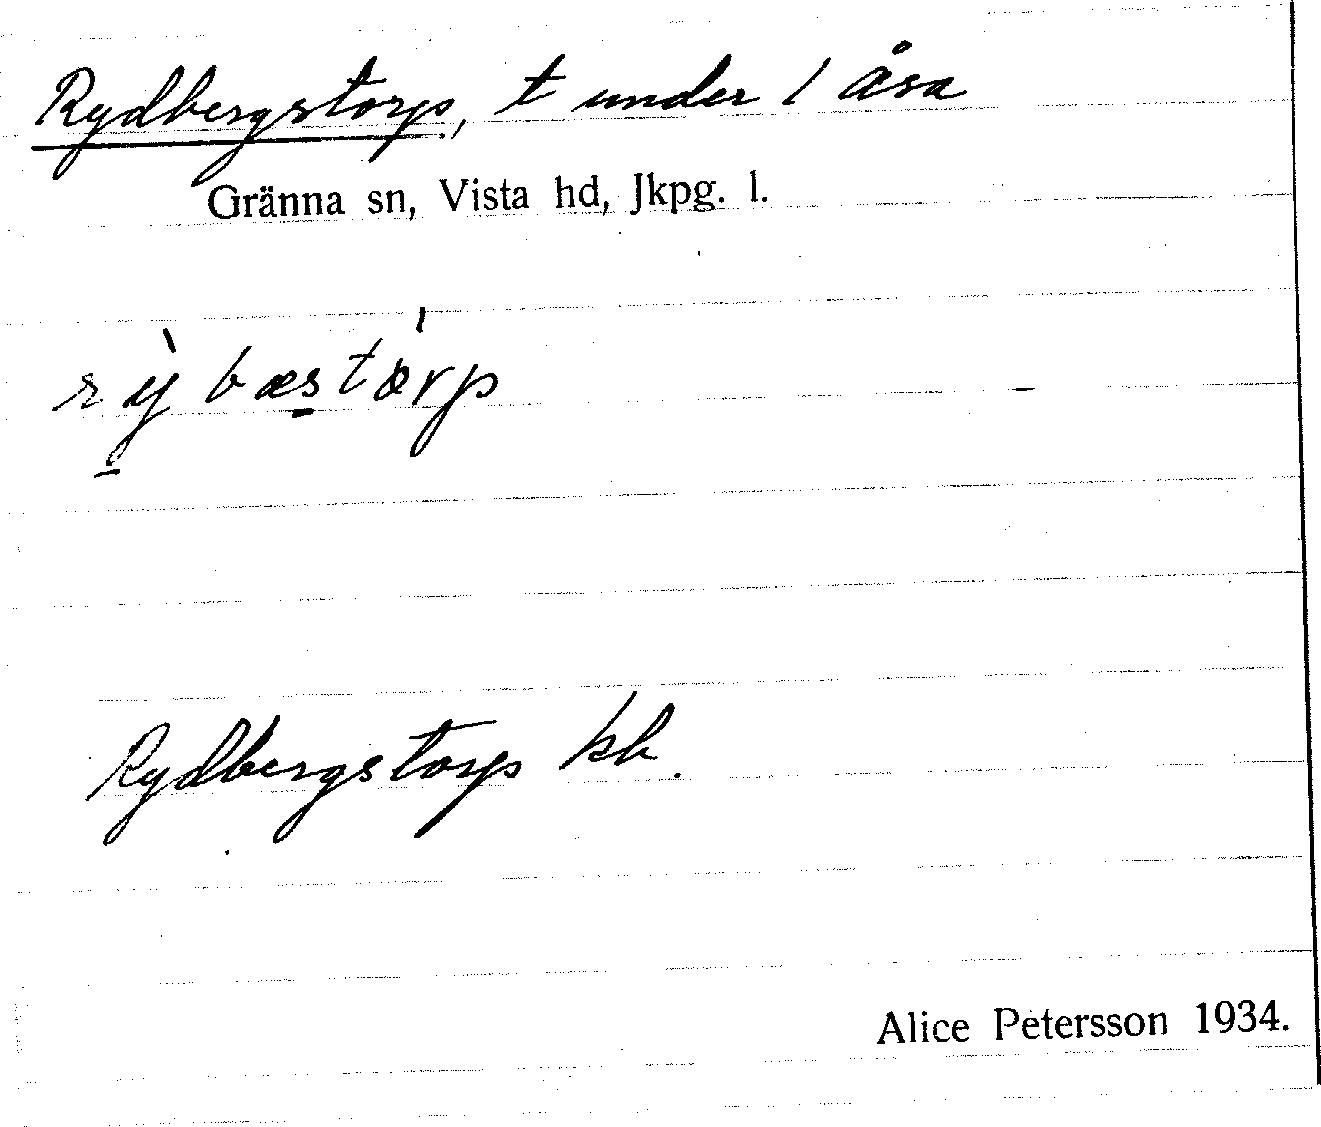 Rydbergstorp, t under 1 åsa
Gränna sn, Vista hd, Jkpg. l.
rỳbæstòrp
Rydbergstorp kb.
Alice Petersson 1934.